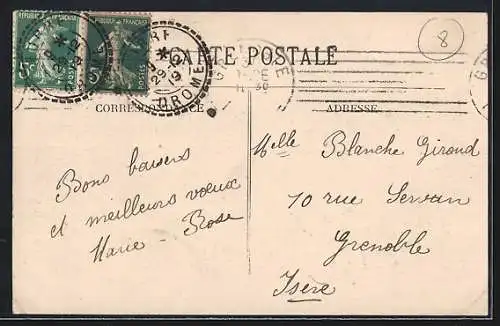 REPUBLIQUE FRANÇAISE
5c
5
DROME
CARTE POSTALE
8
CORRESPONDANCE
ADRESSE
Bons baisers
et meilleurs voeux
Marie-Rose
Melle Blanche Giroud
10 rue Servan
Grenoble
Isère